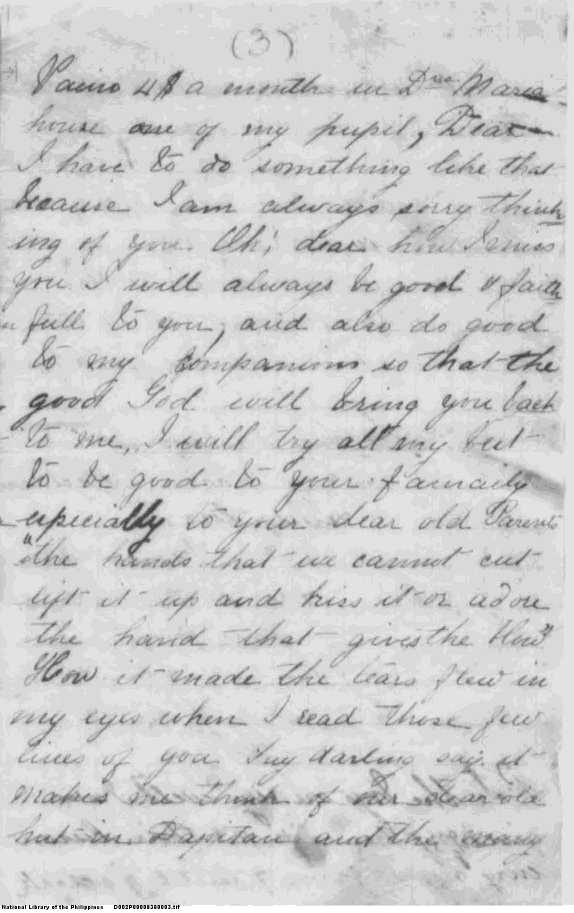 (3)
Paino 4$ a month in Dña Maria
house one of my pupil, Dear
I have to do something like that
because I am always sorry think
ing of you Oh; dear how I miss
you I will always be good & faith
full to you, and also do good
to my companions so that the
good God will bring you back
to me, I will try all my best
to be good to your famaily
especially to your dear old Parents
"the hands that we cannot cut
lift it up and kiss it or adore
the hand that gives the blow"
How it made the tears flew in
my eyes when I read those few
lines of you my darling say it
makes me think of our dear old
hut in Dapitan and the many
National Library of the Philippines D002P00000360003.tif